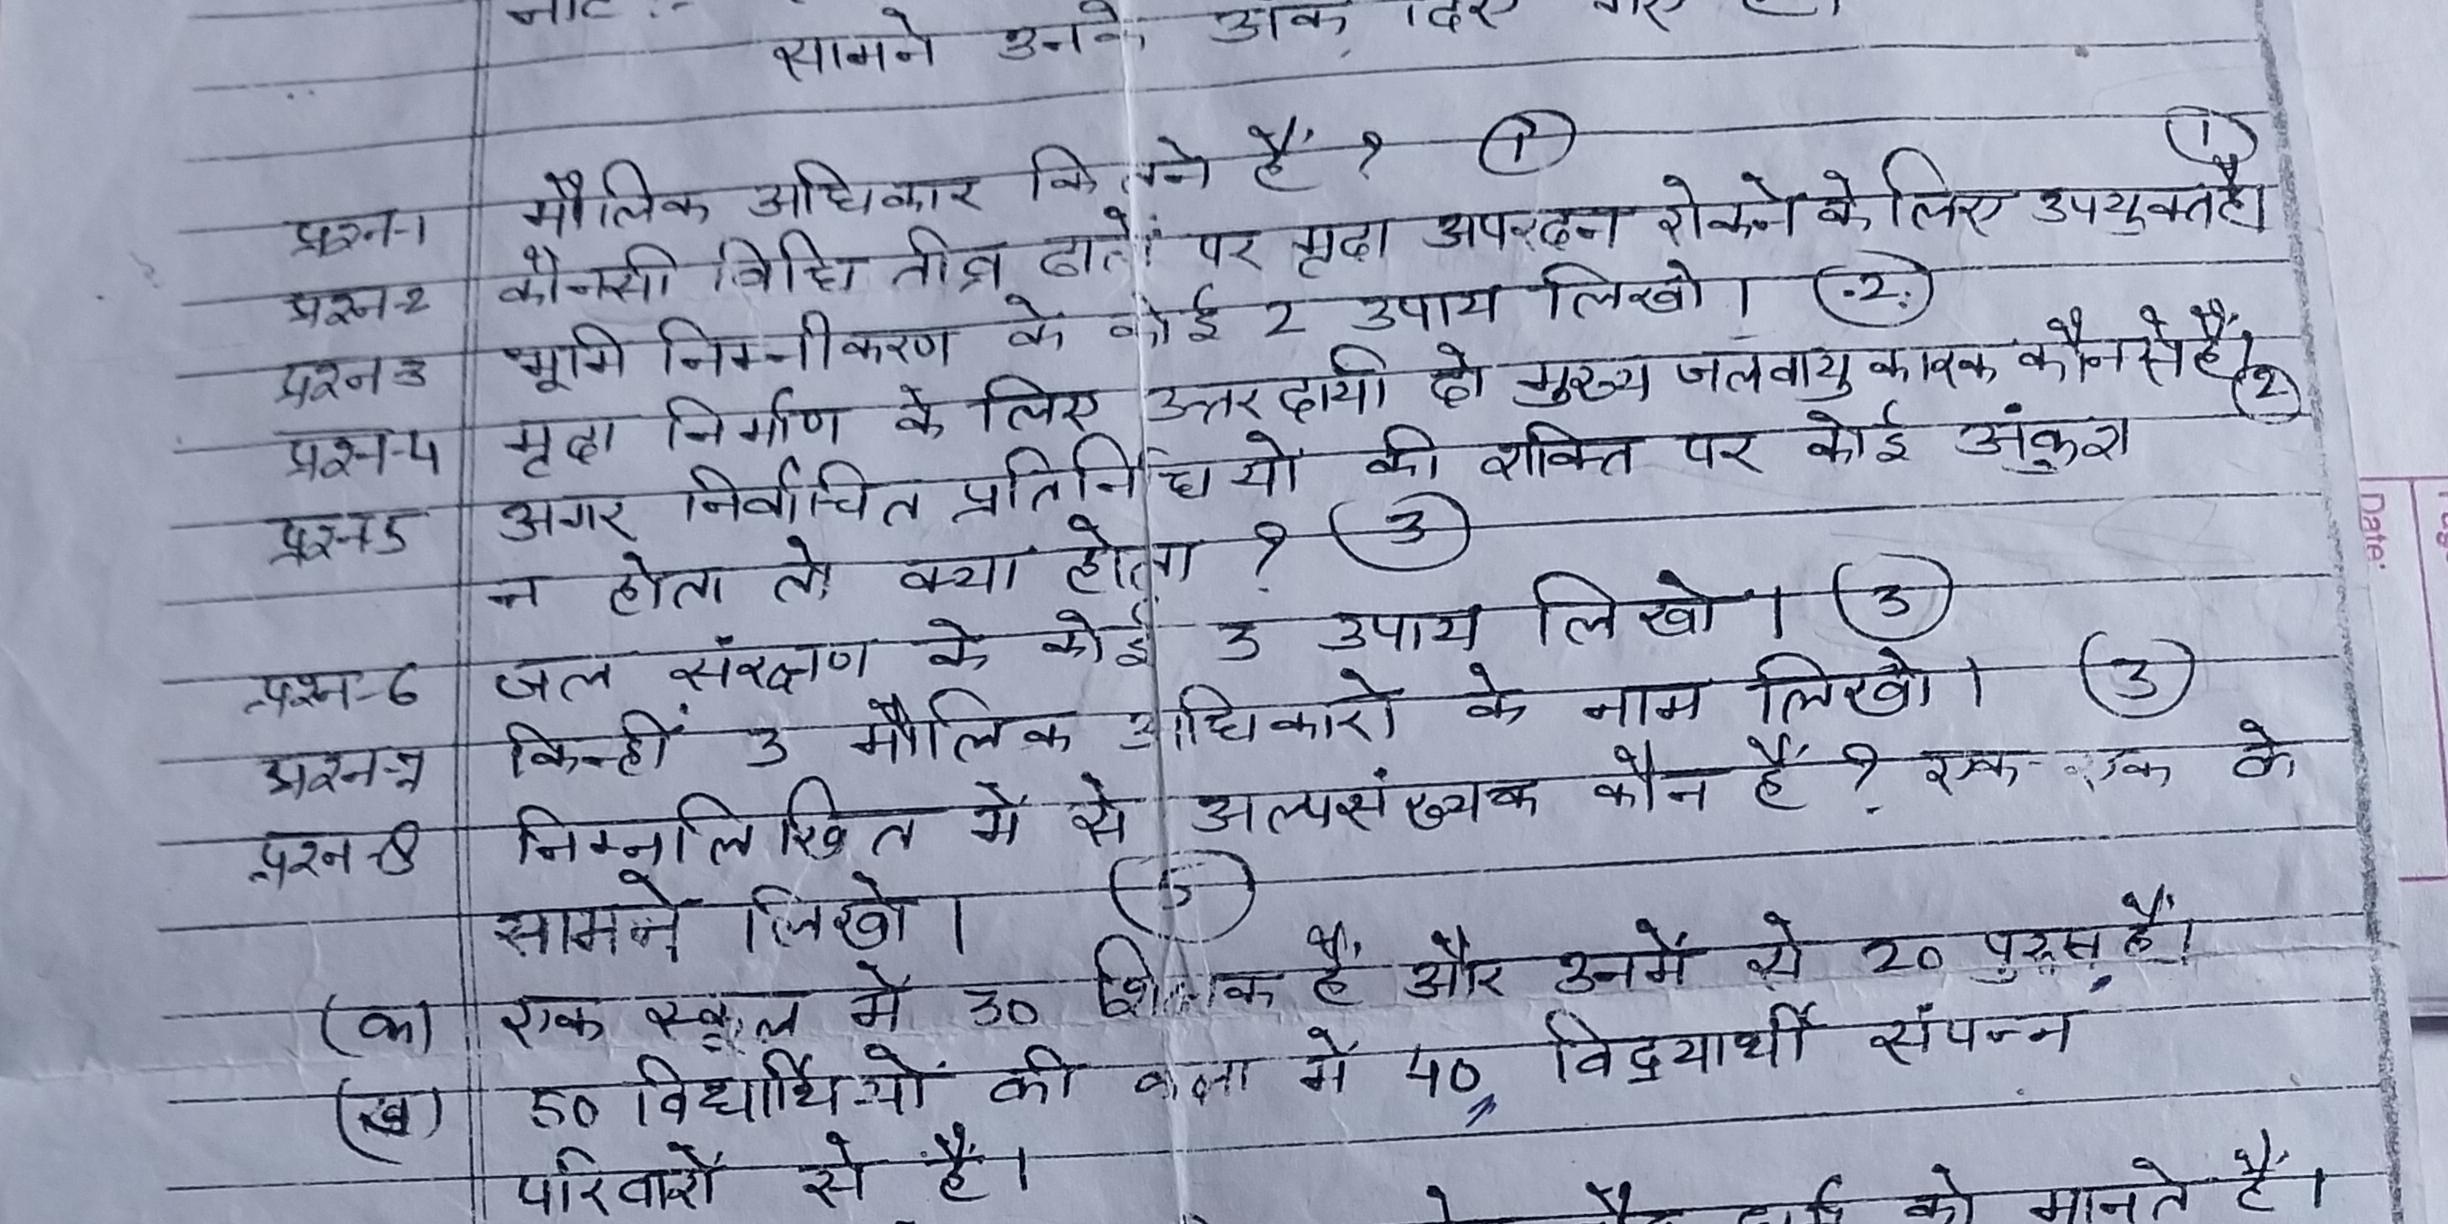 नोट :-
सामने उनके अंक दिए गए हैं।
प्रश्न-1 मौलिक अधिकार कितने हैं ? 1
प्रश्न-2 कौनसी विधि तीव्र ढालों पर मृदा अपरदन रोकने के लिए उपयुक्त है। 1
प्रश्न-3 भूमि निम्नीकरण के कोई 2 उपाय लिखो। 2
प्रश्न-4 मृदा निर्माण के लिए उत्तरदायी दो मुख्य जलवायु कारक कौन से हैं। 2
प्रश्न-5 अगर निर्वाचित प्रतिनिधियों की शक्ति पर कोई अंकुश
न होता तो क्या होता ? 3
प्रश्न-6 जल संरक्षण के कोई 3 उपाय लिखो। 3
प्रश्न-7 किन्हीं 3 मौलिक अधिकारों के नाम लिखो। 3
प्रश्न-8 निम्नलिखित में से अल्पसंख्यक कौन हैं ? एक-एक के
सामने लिखो। 5
(क) एक स्कूल में 30 शिक्षक हैं और उनमें से 20 पुरूस हैं।
(ख) 50 विद्यार्थियों की कक्षा में 40 विद्यार्थी संपन्न
परिवारों से हैं।
को मानते हैं।